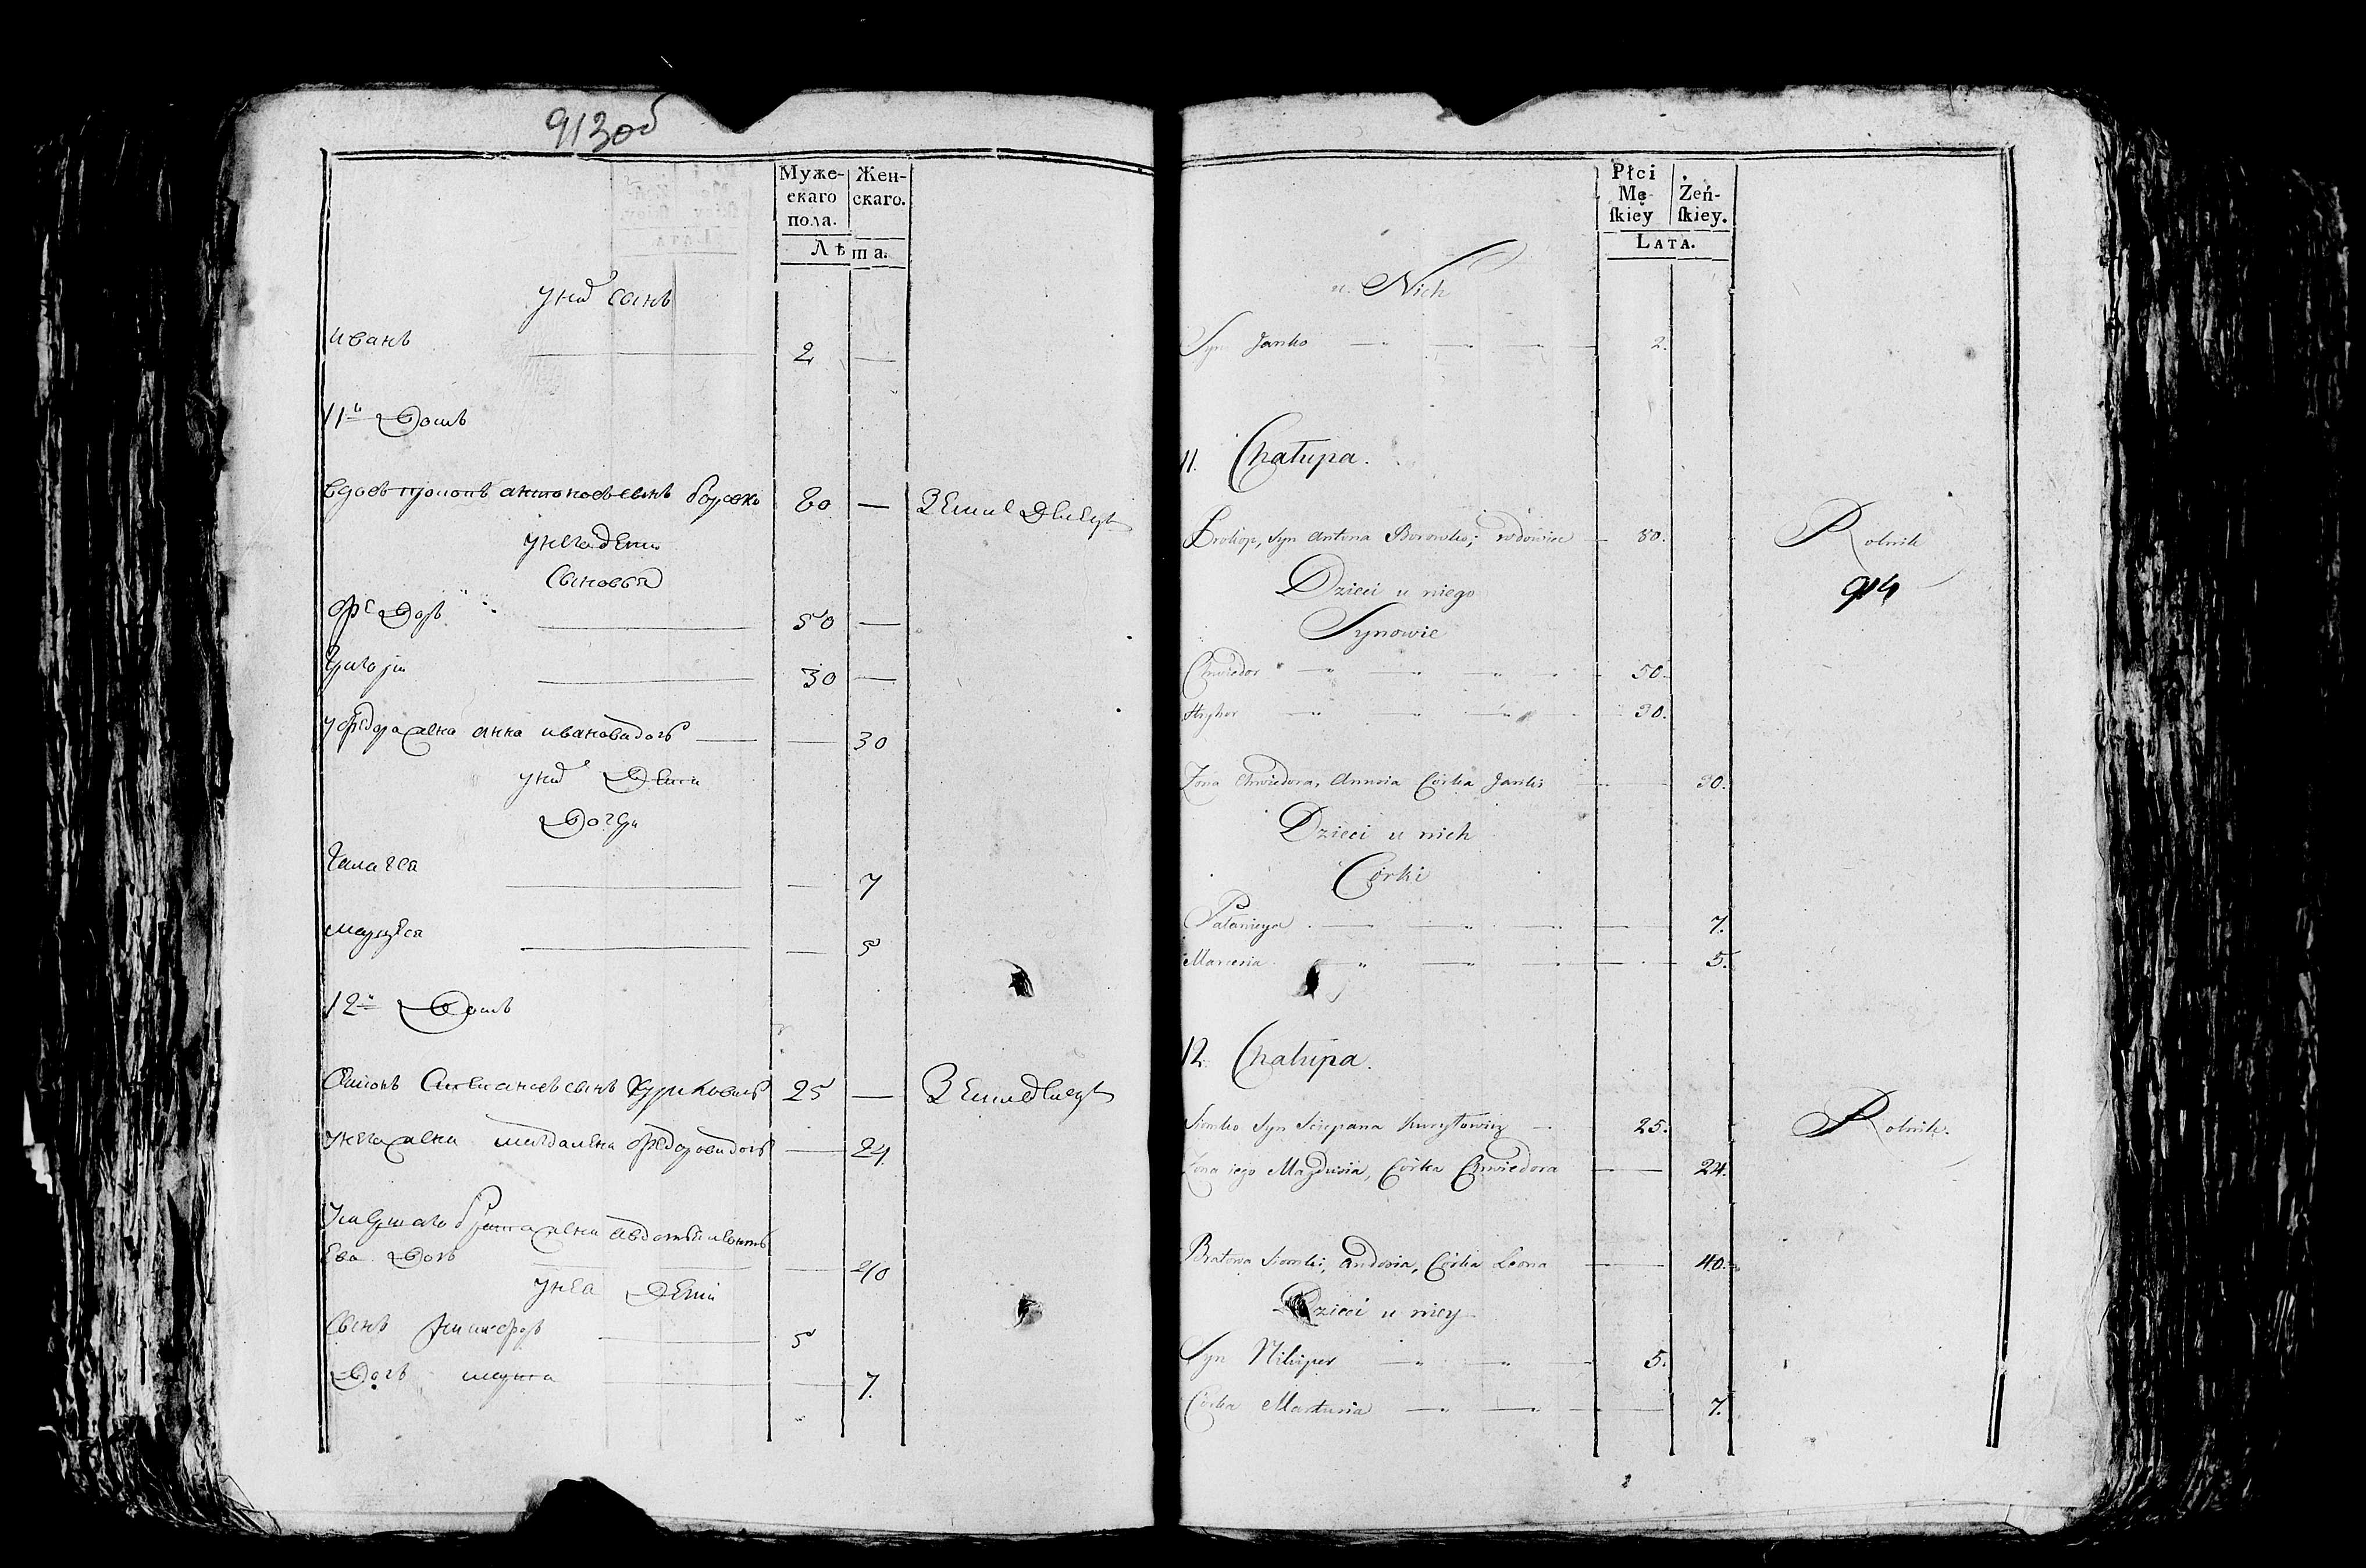 913об
Муже-
скаго
пола.
Жен-
скаго.
Лѣта.
у них сынъ
иванъ 2 —
11й Домъ
вдовъ прокопъ антоновъ сынъ боровко 80 — Землeдѣлецъ
у него дети
сыновья
Федоръ 50 —
григори 30 —
у федора жена анна иванова дочь — 30
у них дети
Дочери
— 7
— 5
12й Домъ
Симонъ Степановъ сынъ 25 — Земледѣлецъ
у него жена магдалена федорова дочь — 24
умершаго брата жена авдотья леонть
ева дочь — 40
у нея дети
сынъ 5
Дочь марта — 7.
Płci
Mę-
skiey
Żeń-
skiey.
Lata.
u Nich
Syn Janko 2.
11. Chałupa.
Prokop, Syn Antona Borowko; wdowiec 80. Rolnik
914
Dzieci u niego
Synowie
Chwiedor 50.
Hryhor 30.
Żona Chwiedora, Annusia Córka Janki 30.
Dzieci u nich
Córki
Pałanieya 7.
Marcesia 5.
12. Chałupa.
Siemko Syn Sciepana Kuryłowicz 25. Rolnik.
Żona iego Magdusia, Córka Chwiedora 24.
Bratowa Siemki, Audosia, Córka Leona 40.
Dzieci u niey
Syn Nikiper 5.
Córka Martusia 7.